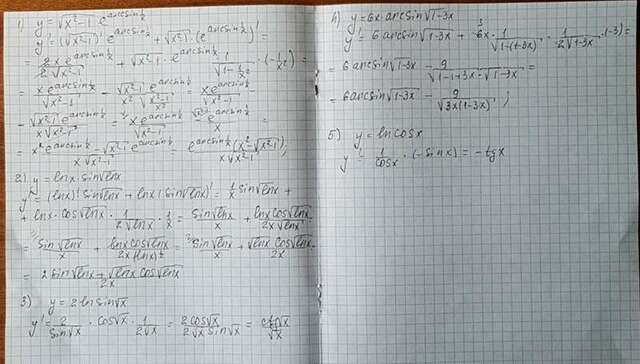 1) y = √(x²-1) e^(arcsin 1/x)
y' = (√(x²-1))' · e^(arcsin 1/x) + √(x²-1) · (e^(arcsin 1/x))' =
= 2x e^(arcsin 1/x) / 2√(x²-1) + √(x²-1) · e^(arcsin 1/x) · 1/√(1-1/x²) · (-1/x²) =
= x e^(arcsin 1/x) / √(x²-1) - √(x²-1) e^(arcsin 1/x) / √((x²-1)/x²) = x e^(arcsin 1/x) / √(x²-1) -
- √(x²-1) e^(arcsin 1/x) / x√(x²-1) = x e^(arcsin 1/x) / √(x²-1) - e^(arcsin 1/x) / x =
= x² e^(arcsin 1/x) - √(x²-1) e^(arcsin 1/x) / x√(x²-1) = e^(arcsin 1/x) (x² - √(x²-1)) / x√(x²-1) ;
2) y = lnx · sin√lnx
y' = (lnx)' sin√lnx + lnx (sin√lnx)' = 1/x sin√lnx +
+ lnx · cos√lnx · 1/2√lnx · 1/x = sin√lnx / x + lnx cos√lnx / 2x√lnx =
= sin√lnx / x + lnx cos√lnx / 2x(lnx)^½ = sin√lnx / x + √lnx cos√lnx / 2x =
= 2 sin√lnx + √lnx cos√lnx / 2x
3) y = 2 ln sin√x
y' = 2/sin√x · cos√x · 1/2√x = 2cos√x / 2√x sin√x = ctg√x / √x
4) y = 6x · arcsin √(1-3x)
y' = 6 arcsin √(1-3x) + 6x · 1/√(1-(1-3x)) · 1/2√(1-3x) · (-3) =
= 6 arcsin √(1-3x) - 9/√(1-1+3x · √(1-3x)) =
= 6 arcsin √(1-3x) - 9/√(3x(1-3x)) ;
5) y = ln cosx
y' = 1/cosx · (-sinx) = -tgx